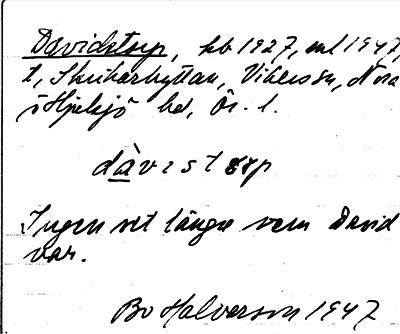 Davidstorp, kb 1927, ml 1947,
t, Skrikarhyttan, Vikers sn, Nora
o Hjulsjö bd, Ör. l.
dàvistorp
Ingen vet längre vem David
var.
Bo Halverson 1947